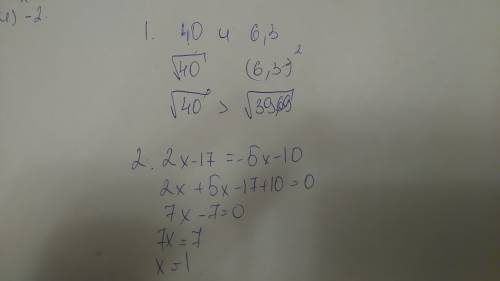 и) -2.
1. 40 и 6,3
√40 (6,3)²
√40 > √39,69
2. 2x-17 = -5x-10
2x+5x-17+10=0
7x-7=0
7x=7
x=1